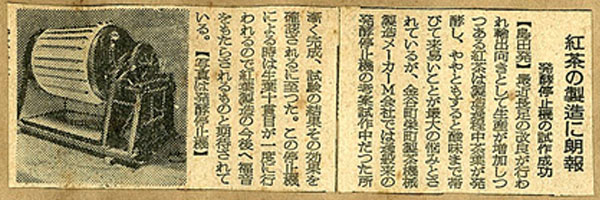 紅茶の製造に朗報
発酵停止機の試作成功
【島田発】最近長足の改良が行わ
れ輸出向きとして生産が増加しつ
つある紅茶は製造過程中茶葉が発
酵し、ややともすると酸味まで帯
びて来易いことが最大の悩みとさ
れているが、金谷町栄町製茶機械
製造メーカーM会社では過般来の
発酵停止機の考案試作中だつた所
漸く完成、試験の結果その効果を
確認されるに至つた。この停止機
による時は生葉十貫目が一度に行
われるので紅葉製造の今後へ福音
をもたらされるものと期待されて
いる。【写真は発酵停止機】